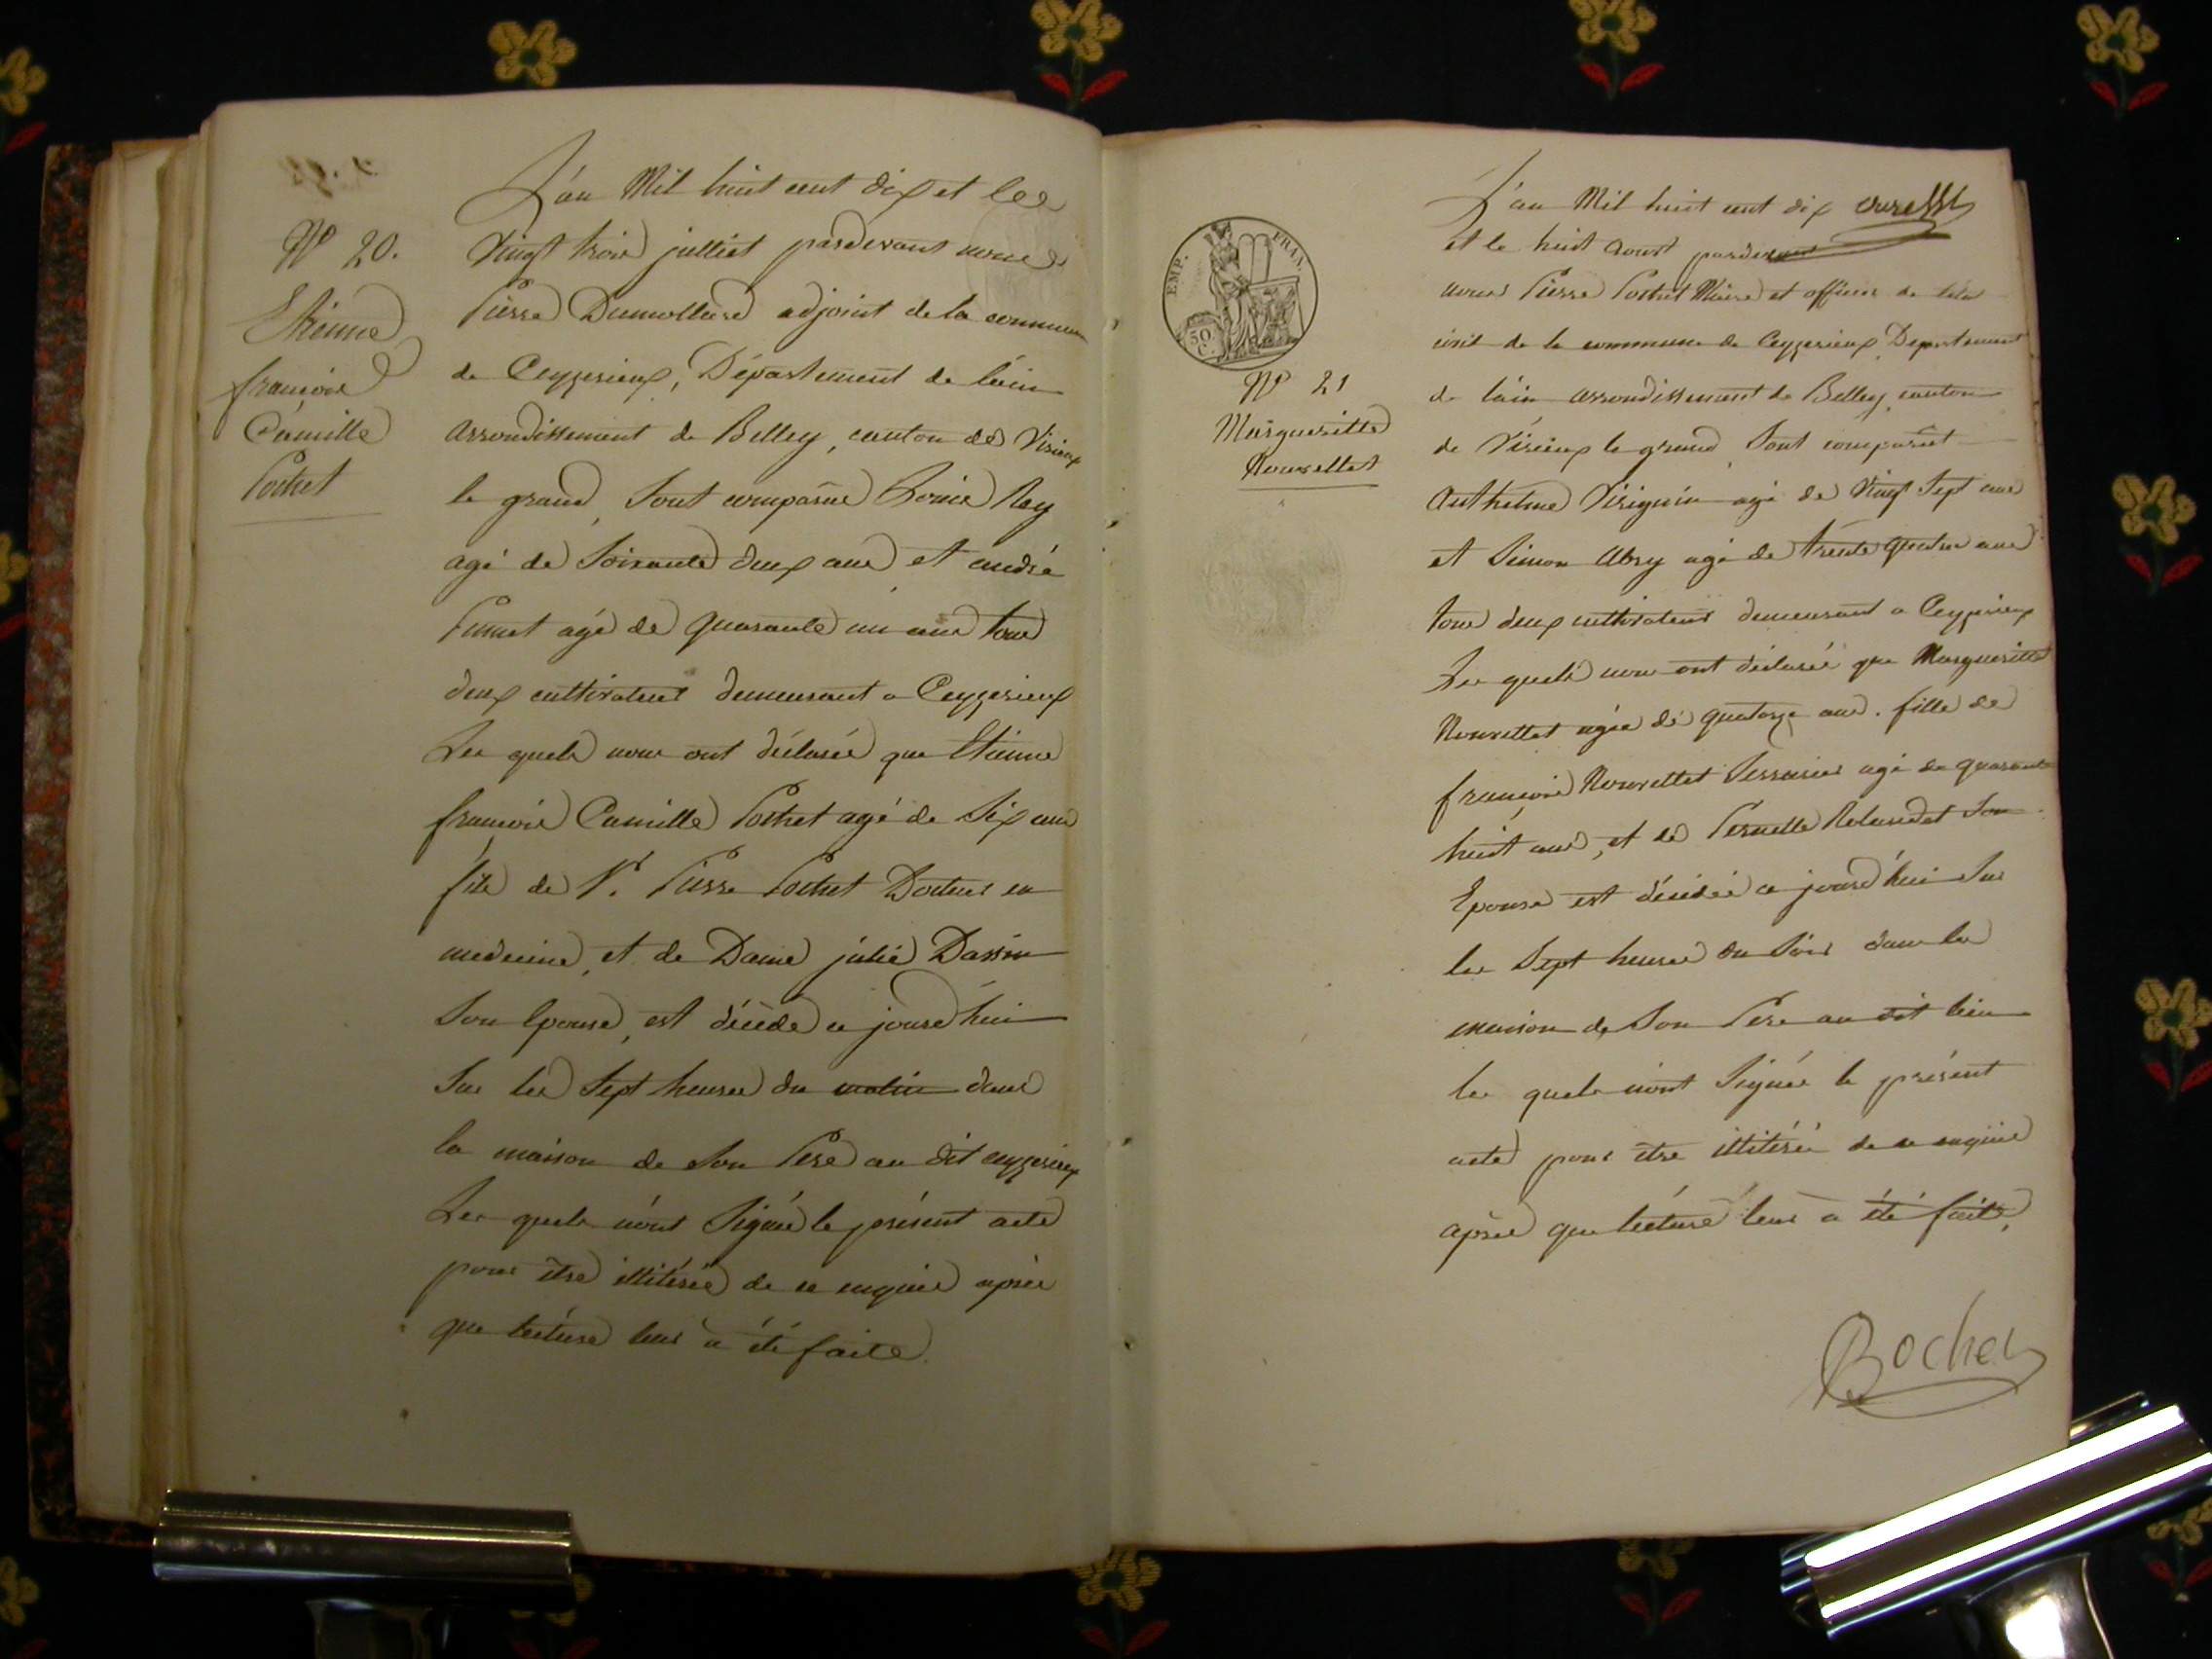 N° 20.
Etienne
françois
Camille
Pochet
L'an Mil huit cent dix et les
Vingt trois julliet pardevant nous
Pierre Dumollard adjoint de la commune
de Ceyzerieux, Département de l'ain
arrondissement de Belley, canton de Virieux
le grand, Sont comparus Louis Rey
agé de Soixante deux ans et andré
agé de quarante un ans tous
deux cultivateurs demeurant a Ceyzerieux
Les quels nous ont déclarés que Etienne
françois Camille Pochet agé de Six ans
fils de Sr. Pierre Pochet Docteur en
medecine, et de Dame julie
Son Epouse, est décédé ce jourd'hui
Sur les Sept heures du matin dans
la maison de Son Pere au dit ceyzerieux
Les quels n'ont Signés le présent acte
pour être illitérés de ce enquis après
que lecture leur a été faite.
EMP. FRAN.
50 C.
N° 21
Margueritte
Rouvellet
L'an Mil huit cent dix
et le huit aoust pardevant
nous Pierre Pochet Maire et officier de l'état
civil de la commune de Ceyzerieux, Departement
de l'ain arrondissement de Belley, canton
de Virieux le grand, Sont comparut
Anthelme Virignin agé de Vingt Sept ans
et Simon Abry agé de trente quatre ans
tous deux cultivateurs demeurant a Ceyzerieux
Les quels nous ont déclarés que Marguerittes
Rouvellet agée de quatorze ans. fille de
françois Rouvellet Serrurier agé de quarante
huit ans, et de Pernette Son
Epouse est décédée ce jourd'hui Sur
les Sept heures du Soir dans la
maison de Son Pere au dit lieu
les quels n'ont Signés le présent
acte pour être illitérés de ce enquis
après que lecture leur a été faite,
Bochet